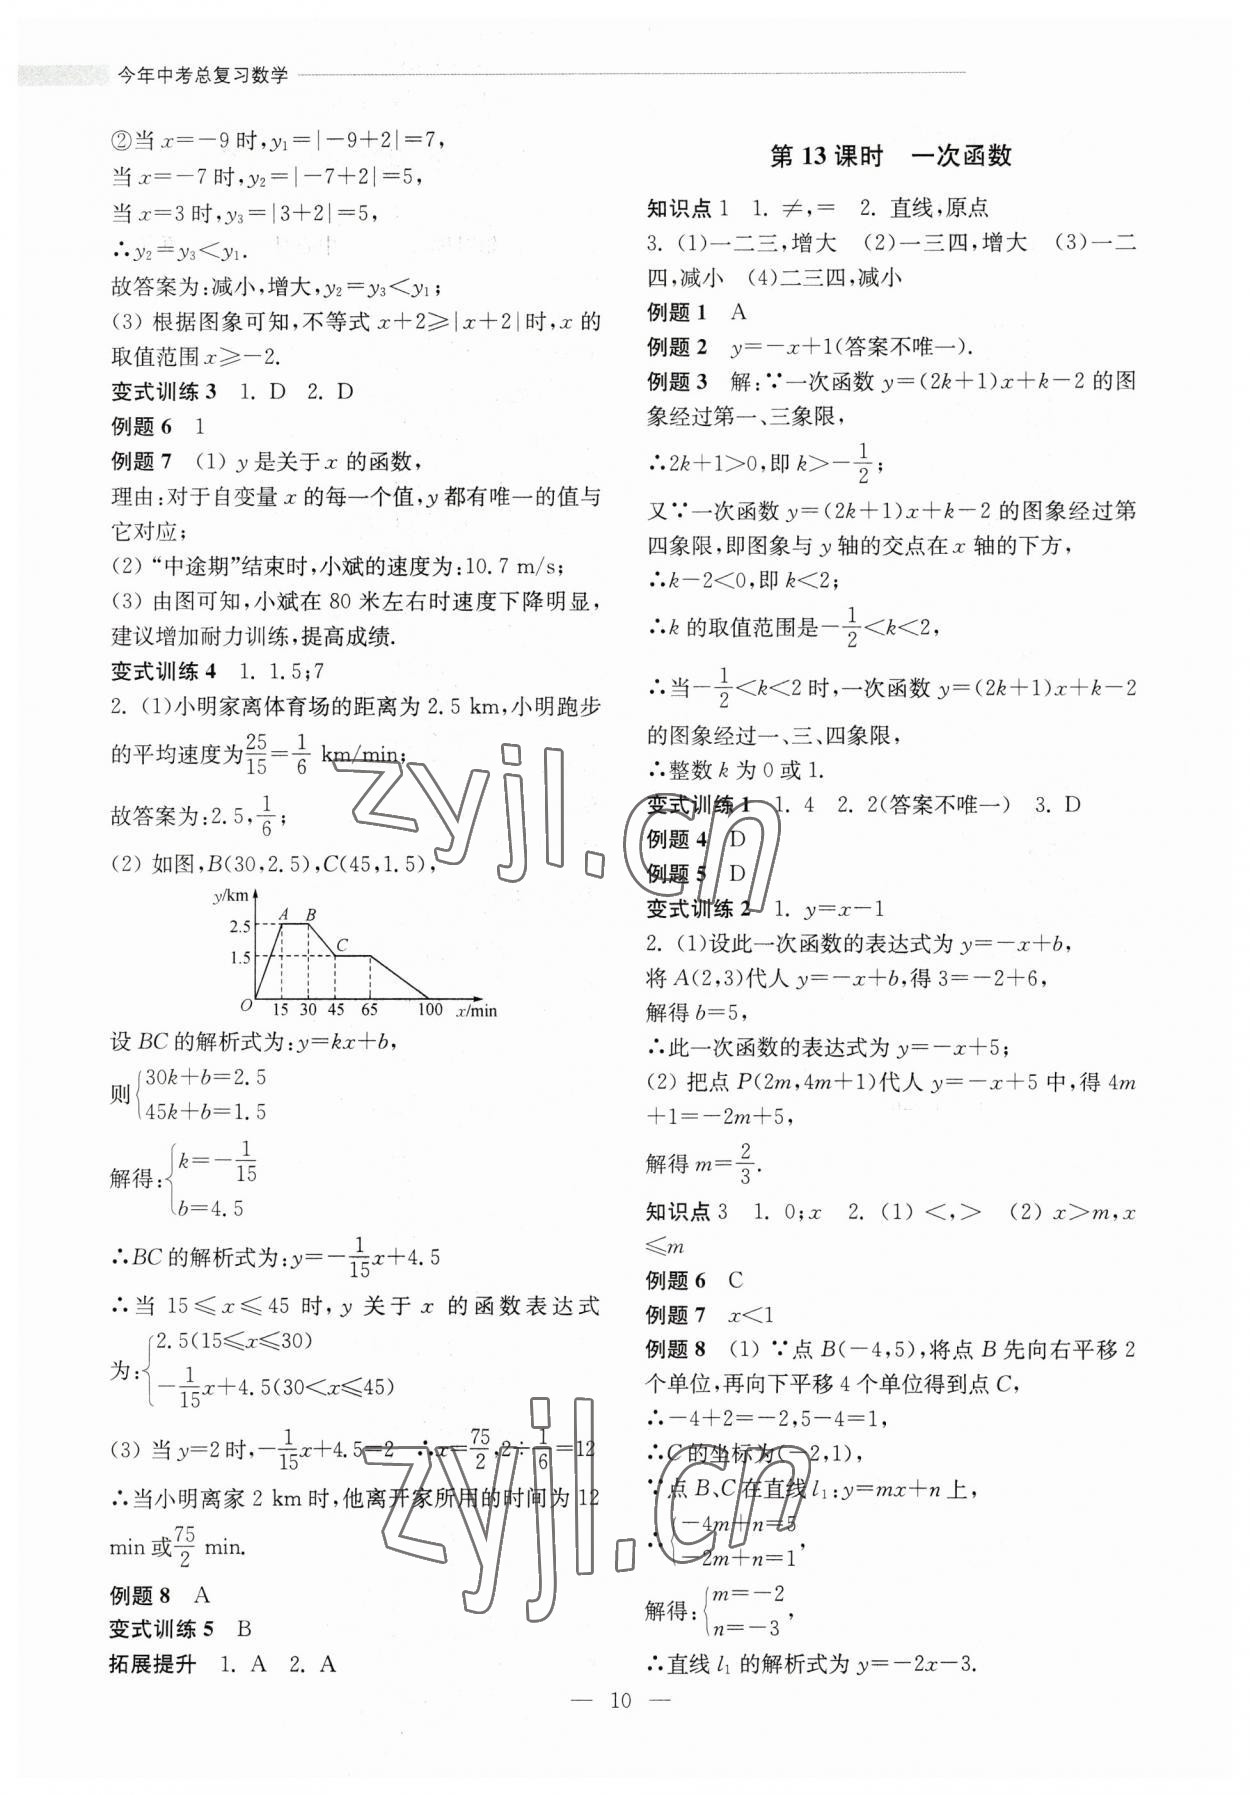 今年中考总复习数学
②当 x=-9 时,y₁=|-9+2|=7,
当 x=-7 时,y₂=|-7+2|=5,
当 x=3 时,y₃=|3+2|=5,
∴y₂=y₃<y₁.
故答案为:减小,增大,y₂=y₃<y₁;
(3) 根据图象可知,不等式 x+2⩾|x+2|时,x 的
取值范围 x⩾-2.
变式训练 3 1. D 2. D
例题 6 1
例题 7 (1) y 是关于 x 的函数,
理由:对于自变量 x 的每一个值,y 都有唯一的值与
它对应;
(2) “中途期”结束时,小斌的速度为:10.7 m/s;
(3) 由图可知,小斌在 80 米左右时速度下降明显,
建议增加耐力训练,提高成绩.
变式训练 4 1. 1.5;7
2. (1)小明家离体育场的距离为 2.5 km,小明跑步
的平均速度为25/15=1/6 km/min;
故答案为:2.5,1/6;
(2) 如图,B(30,2.5),C(45,1.5),
y/km
A B
2.5
C
1.5
O 15 30 45 65 100 x/min
设 BC 的解析式为:y=kx+b,
则{30k+b=2.5
45k+b=1.5
解得:{k=-1/15
b=4.5
∴BC 的解析式为:y=-1/15x+4.5
∴当 15⩽x⩽45 时,y 关于 x 的函数表达式
为:{2.5(15⩽x⩽30)
-1/15x+4.5(30<x⩽45)
(3) 当 y=2 时,-1/15x+4.5=2 ∴x=75/2,2÷1/6=12
∴当小明离家 2 km 时,他离开家所用的时间为 12
min 或75/2 min.
例题 8 A
变式训练 5 B
拓展提升 1. A 2. A
第 13 课时 一次函数
知识点 1 1. ≠,= 2. 直线,原点
3. (1)一二三,增大 (2)一三四,增大 (3)一二
四,减小 (4)二三四,减小
例题 1 A
例题 2 y=-x+1(答案不唯一).
例题 3 解:∵一次函数 y=(2k+1)x+k-2 的图
象经过第一、三象限,
∴2k+1>0,即 k>-1/2;
又∵一次函数 y=(2k+1)x+k-2 的图象经过第
四象限,即图象与 y 轴的交点在 x 轴的下方,
∴k-2<0,即 k<2;
∴k 的取值范围是-1/2<k<2,
∴当-1/2<k<2 时,一次函数 y=(2k+1)x+k-2
的图象经过一、三、四象限,
∴整数 k 为 0 或 1.
变式训练 1 1. 4 2. 2(答案不唯一) 3. D
例题 4 D
例题 5 D
变式训练 2 1. y=x-1
2. (1)设此一次函数的表达式为 y=-x+b,
将 A(2,3)代人 y=-x+b,得 3=-2+6,
解得 b=5,
∴此一次函数的表达式为 y=-x+5;
(2) 把点 P(2m,4m+1)代人 y=-x+5 中,得 4m
+1=-2m+5,
解得 m=2/3.
知识点 3 1. 0;x 2. (1) <,> (2) x>m,x
⩽m
例题 6 C
例题 7 x<1
例题 8 (1) ∵点 B(-4,5),将点 B 先向右平移 2
个单位,再向下平移 4 个单位得到点 C,
∴-4+2=-2,5-4=1,
∴C 的坐标为(-2,1),
∵点 B、C 在直线 l₁:y=mx+n 上,
∴{-4m+n=5
-2m+n=1,
解得:{m=-2
n=-3,
∴直线 l₁ 的解析式为 y=-2x-3.
— 10 —
zyjl.cn
zyjl.cn